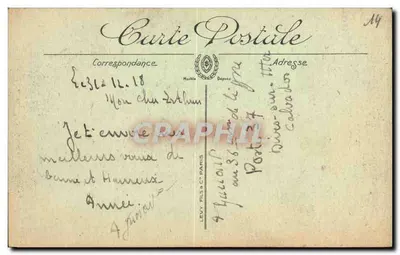 14
Carte Postale
Correspondance
Adresse
Modèle Déposé
Le 31-12-18
Mon cher Arthur
Je t'envoie mes
meilleurs vœux de
bonne et Heureuse
Année
LEVY FILS & Cie PARIS
au 36 de ligne
Dives-sur-Mer
Calvados
CPARAMA